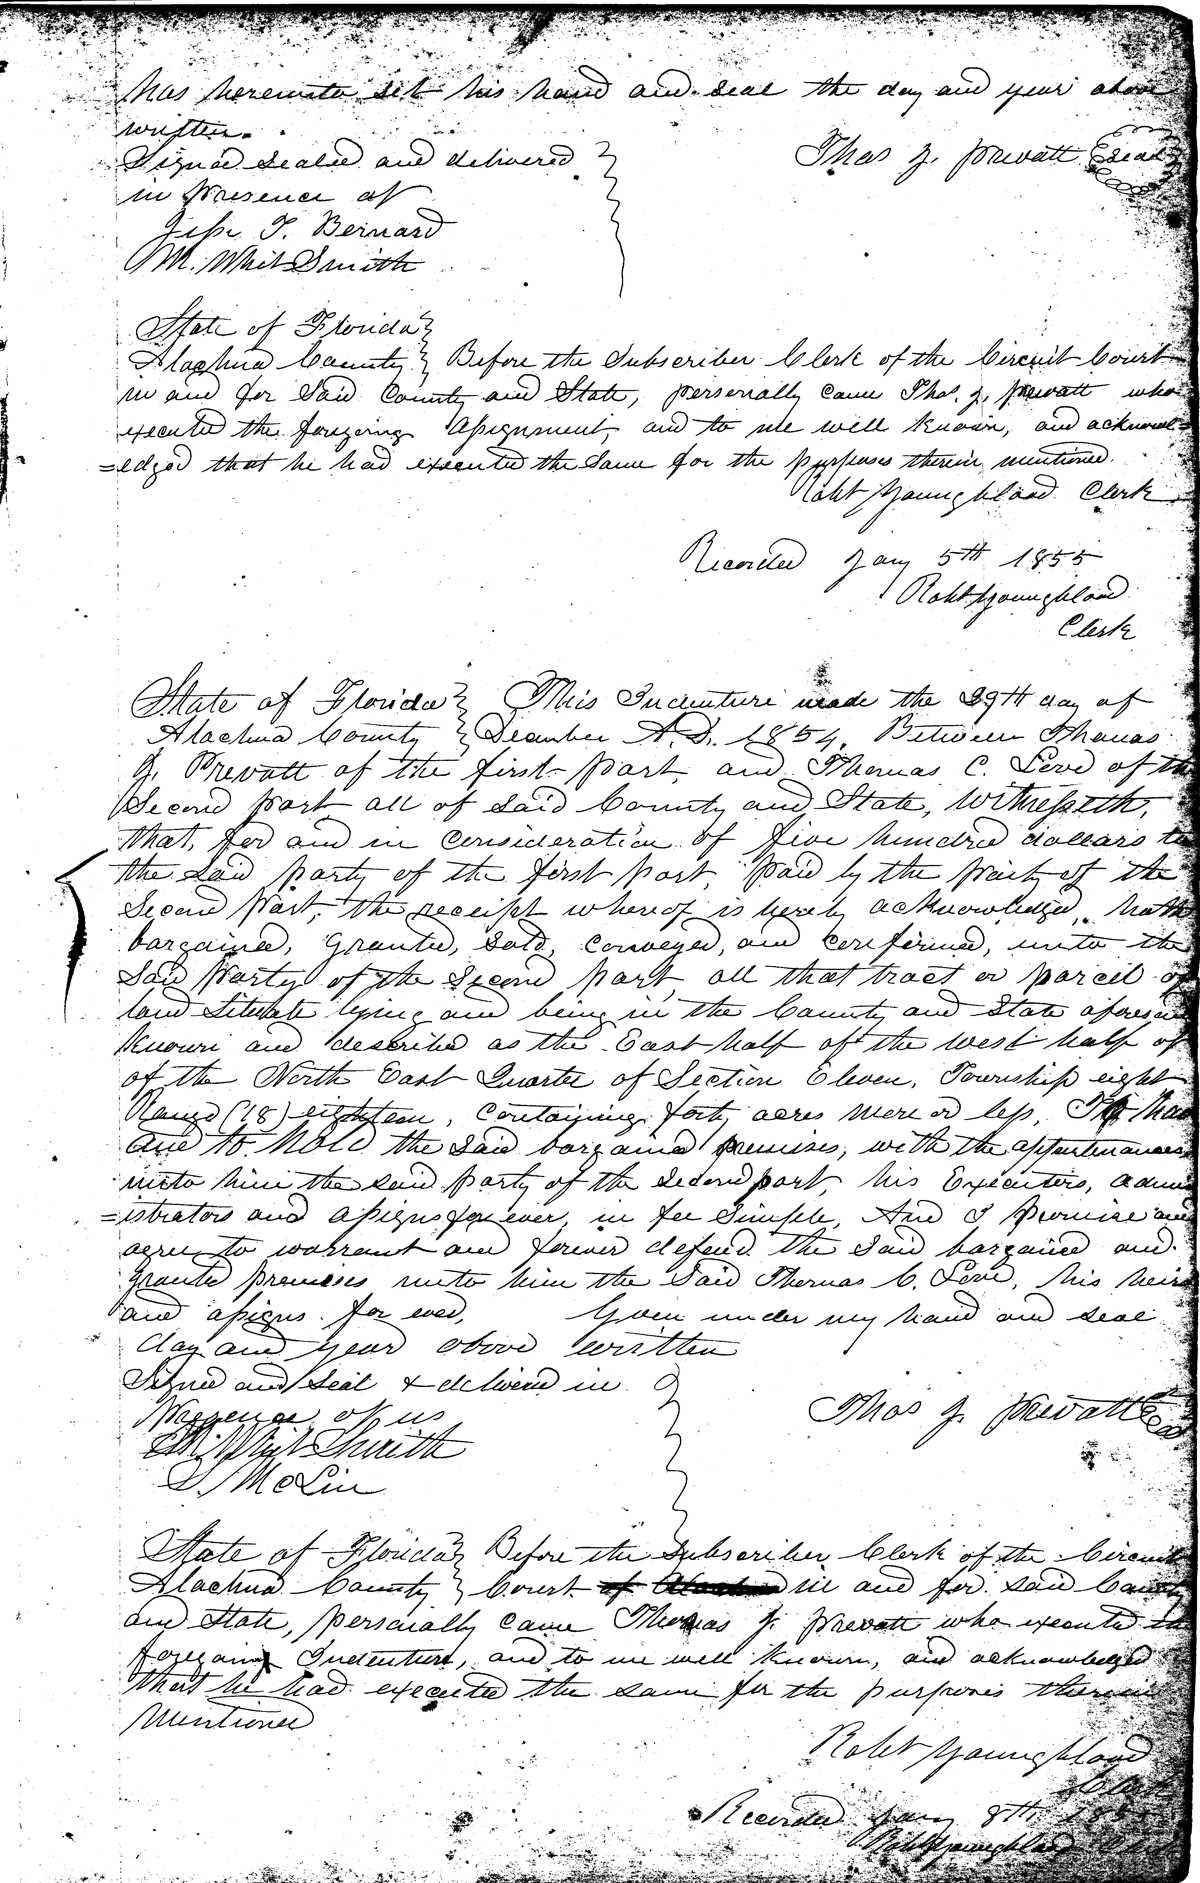 has hereunto set his hand and seal the day and year above
written.
Signed Sealed and delivered
in Presence of
Thos J. Prevatt Seal
Jesse T. Bernard
M. Whit Smith
State of Florida
Alachua County Before the Subscriber Clerk of the Circuit Court
in and for Said County and State, personally came Thos. J. Prevatt who
executed the foregoing Assignment, and to me well known, and acknowl=
=edged that he had executed the Same for the purposes therein mentioned.
Robt Youngblood Clerk
Recorded Jany 5th 1855
Robt Youngblood
Clerk
State of Florida This Indenture made the 29th day of
Alachua County December A.D. 1854, Between Thomas
J. Prevatt of the first part, and Thomas C. Love of the
Second part all of Said County and State, Witnesseth,
that, for and in consideration of five hundred dollars to
the Said party of the first part, paid by the party of the
Second Part, the receipt whereof is hereby acknowledged, hath
bargained, Granted, Sold, Conveyed, and Confirmed, unto the
Said Party of the Second part, all that tract or parcel of
land Situate lying and being in the County and State aforesaid
Known and described as the East half of the west half of
of the North East Quarter of Section Eleven, Township eight
Range (18) eighteen, Containing forty acres more or less, To have
and to hold the Said bargained premises, with the appurtenances
unto him the said party of the Second part, his Executors, admin
=istrators and assigns forever, in fee Simple, And I Promise and
agree to warrant and forever defend the Said bargained and
Granted premises unto him the Said Thomas C. Love, his heirs
and assigns for ever, Given under my hand and seal
day and year above written
Signed and Seal & delivered in
Presence of us
Thos J. Prevatt
M. Whit Smith
D. McLin
State of Florida Before the Subscriber Clerk of the Circuit
Alachua County Court of Alachua in and for said County
and State, personally came Thomas J. Prevatt who executed the
foregoing Indenture, and to me well known, and acknowledged
that he had executed the same for the purposes therein
Mentioned
Robt Youngblood
Clerk
Recorded Jany 8th 1855
Robt Youngblood Clerk